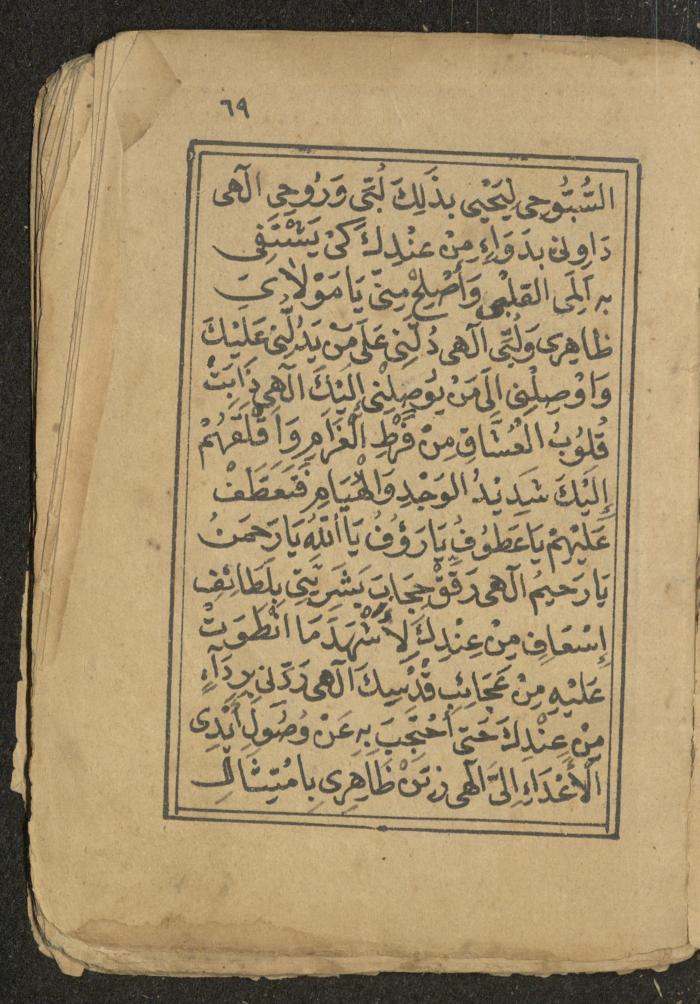 ٦٩
السُّبُّوحِى لِيَحْيٰى بِذٰلِكَ لُبّى وَرُوحِى الٓهى
دَاوِنى بِدَوَاءٍ مِنْ عِنْدِكَ كَىْ يَشْتَفِى
بِهِ اَلَمِى القَلْبِى وَأَصْلِحْ مِنّى يَا مَوْلَاىَ
ظَاهِرِى وَلُبّى الٓهى دُلَّنِى عَلَى مَنْ يَدُلُّنِى عَلَيْكَ
وَاوْصِلْنِى اِلَى مَنْ يُوصِلُنِى اِلَيْكَ الٓهى ذَابَتْ
قُلُوبُ العُشَّاقِ مِنْ فَرْطِ الْغَرَامِ وَاَقْلَقَهُمْ
اِلَيْكَ شَدِيْدُ الوَجْدِ وَالْهُيَامِ فَتَعَطَّفْ
عَلَيْهِمْ يَا عَطُوْفُ يَا رَؤُفُ يَا اَللّٰهُ يَا رَحْمَنُ
يَا رَحِيْمُ الٓهى رَقِّقْ حِجَابَ بَشَرِيَّتِى بِلَطَائِفِ
اِسْعَافٍ مِنْ عِنْدِكَ لِأَشْهَدَ مَا انْطَوَتْ
عَلَيْهِ مِنْ عَجَائِبِ قُدْسِكَ الٓهى رَدِّنى بِرِدَآءٍ
مِنْ عِنْدِكَ حَتّى أَحْتَجِبَ بِهِ عَنْ وُصُولِ أَيْدِى
الْأَعْدَاءِ اِلَىَّ الٓهى زَيِّنْ ظَاهِرِى بِامْتِثَالِ